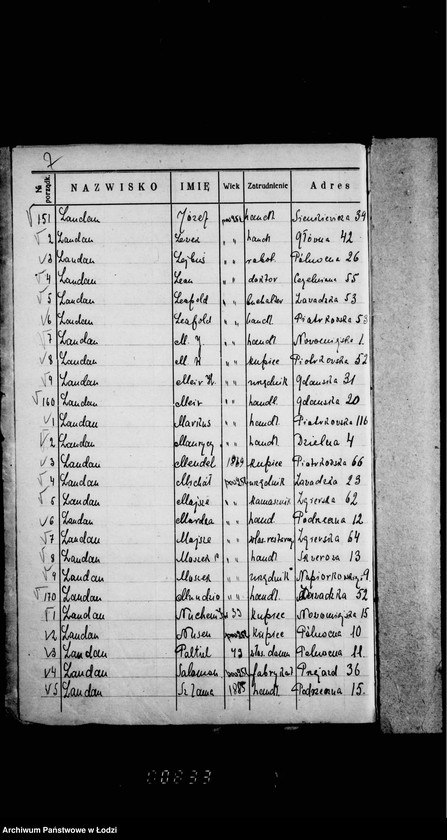 7
№ porządk. NAZWISKO IMIĘ Wiek Zatrudnienie Adres
√151 Landau Józef pow25l handl Sienkiewicza 34
√2 Landau " " handl Główna 42
√3 Landau Lejbuś " " Północna 26
√4 Landau Leon " " doktor Cegielniana 55
√5 Landau Leopold " " buchalter Zawadzka 53
√6 Landau Leopold " " handl Piotrkowska 53
√7 Landau M. J " " handl Nowomiejska 1
√8 Landau M. " " kupiec Piotrkowska 52
√9 Landau Meir " " urzędnik Gdańska 31
√160 Landau Meir " " handl. Gdańska 20
√1 Landau Mariusz " " handl. Piotrkowska 116
√2 Landau Maurycy " " handl Dzielna 4
√3 Landau Mendel 1869 kupiec Piotrkowska 66
√4 Landau Michał pow25l urzędnik Zawadzka 23
√5 Landau Majsze " " kamasznik Zgierska 62
√6 Landau Mordka " " hand. Podrzeczna 12
√7 Landau Majsze " " Zgierska 64
√8 Landau Moszek " " handl Skwerowa 13
√9 Landau Moszek " " urzędnik Napiórkowskiego 9
√170 Landau " " handl. Zawadzka 52
√1 Landau Nuchem 33 kupiec Nowomiejska 15
√2 Landau Nusen pow25l kupiec Północna 10
√3 Landau Paltiel 42 Północna 11.
√4 Landau Salomon pow25l fabrykant Przejazd 36
√5 Landau Szlama 1885 handl Podrzeczna 15.
00833
Archiwum Państwowe w Łodzi